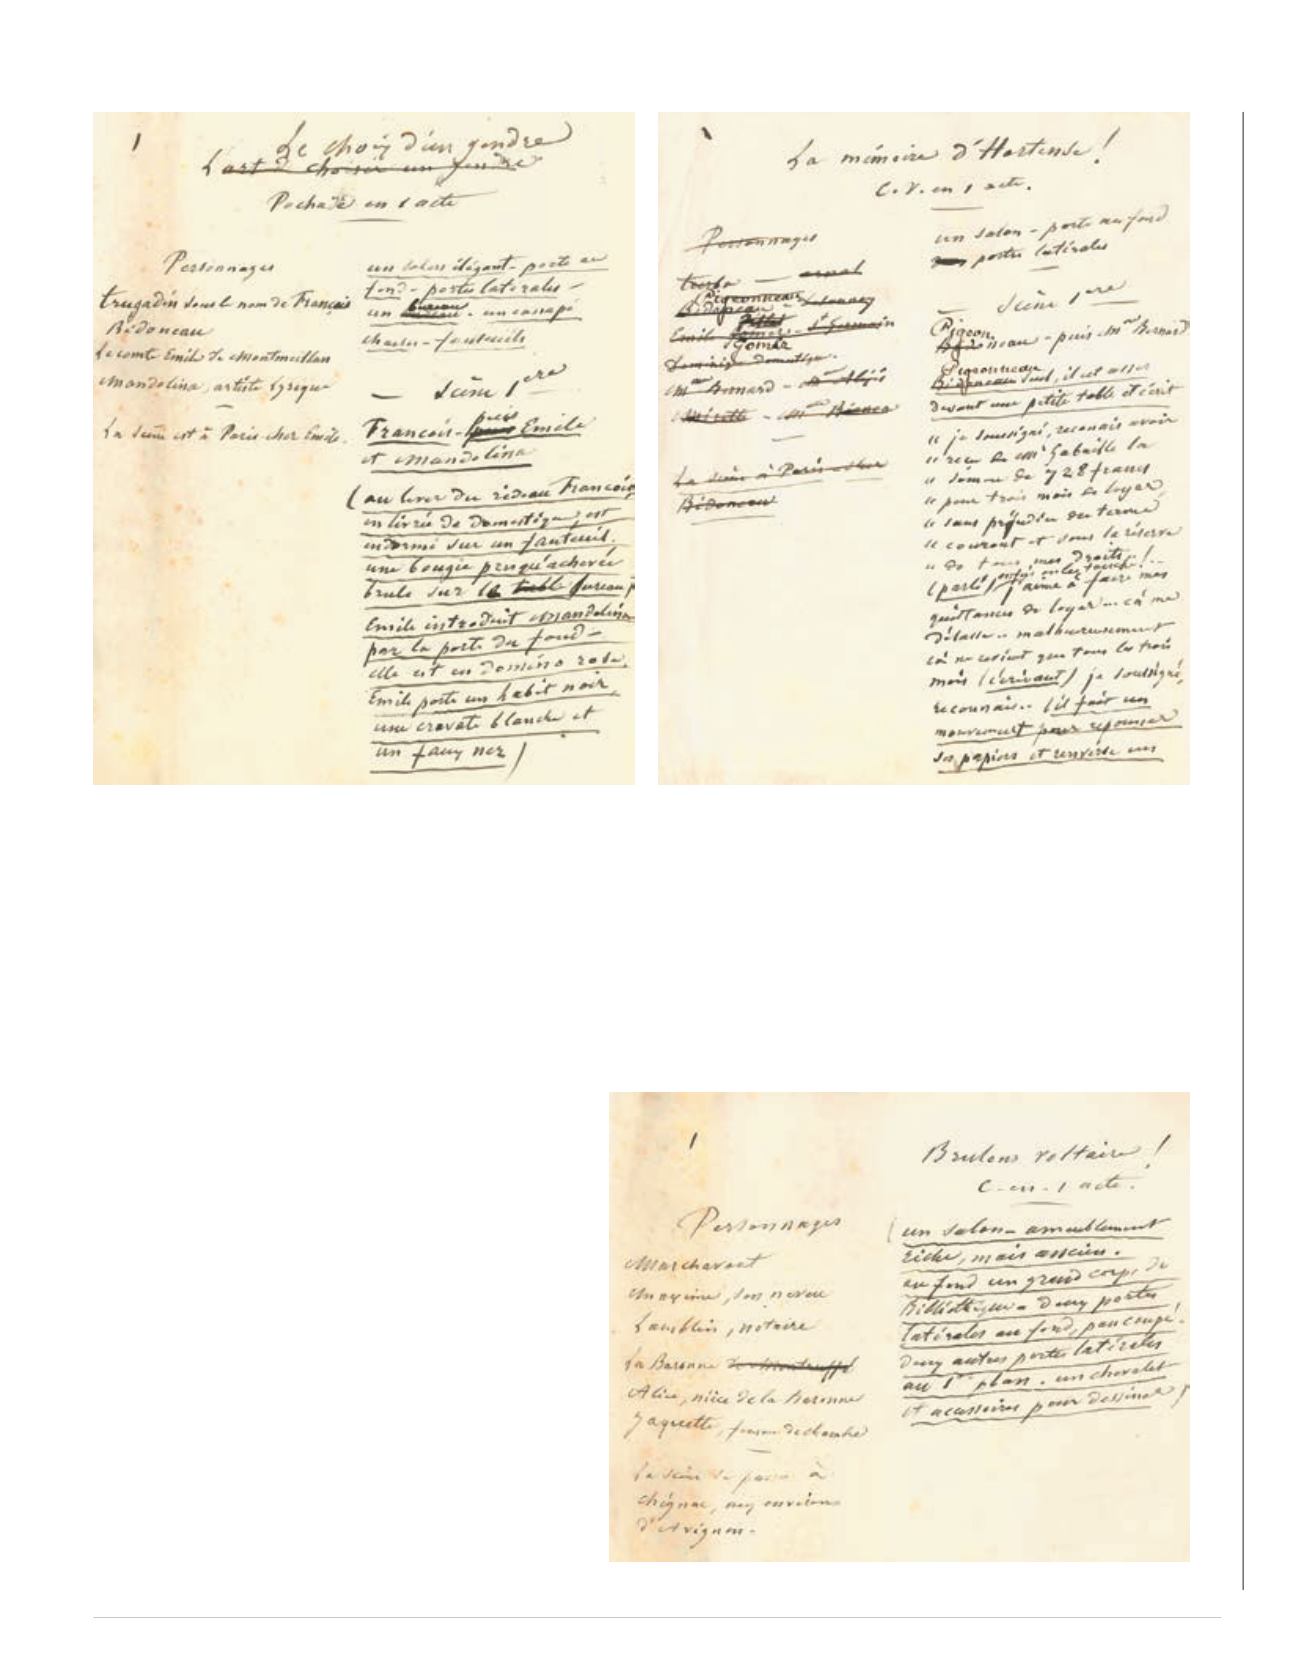 1
Le choix d'un gendre
L'art de choisir un gendre
Pochade en 1 acte
Personnages
trugadin sous le nom de François
Bidoneau
Le comte Emile de Montmeillan
Mandolina, artiste lyrique
La scène est à Paris chez Emile.
un salon élégant - porte au
fond - portes latérales -
un bureau - un canapé
chaises - fauteuils
Scène 1ere
François - puis Emile
et Mandolina
(au lever du rideau François,
en livrée de domestique, est
endormi sur un fauteuil.
une bougie presqu'achevée
brule sur le table bureau,
Emile introduit Mandolina
par la porte du fond -
elle est en domino rose,
Emile porte un habit noir,
une cravate blanche et
un faux nez)
La mémoire d'Hortense!
C. V. en 1 acte.
Personnages
arnal
Pigeonneau
Bidoneau
Emile - St Germain
Gomar
Dominique domestique.
Mme Bernard
La scène à Paris chez
Bidoneau
un salon - porte au fond
portes latérales
Scène 1ere
Pigeon
neau - puis Mme Bernard
Pigeonneau
Bidoneau seul, il est assis
devant une petite table et écrit
" je soussigné, reconais avoir
" reçu de Mr Gabaille la
" somme de 728 francs
" pour trois mois de loyer,
" sans préjudice du terme
" courant et sous la réserve
" de tous mes droits
(parlé) j'aime à faire mes
quittances de loyer... cà me
délasse.. malheureusement
cà ne revient que tous les trois
mois (écrivant) je soussigné,
reconnais.. (il fait un
mouvement pour repousser
ses papiers et renverse un
1
Brulons voltaire!
C - en - 1 acte.
Personnages
Marchavant
Maxime, son neveu
Lamblin, notaire
La Baronne
Alice, nièce de la Baronne
Jaquette, femme de chambre
La scène se passe à
Chignac, aux environs
d'Avignon -
(un salon - ameublement
riche, mais ancien.
au fond un grand corps de
Bibliothèque - deux portes
latérales au fond, pan coupé.
deux autres portes latérales
au 1er plan. un chevalet
et accessoires pour dessiner)